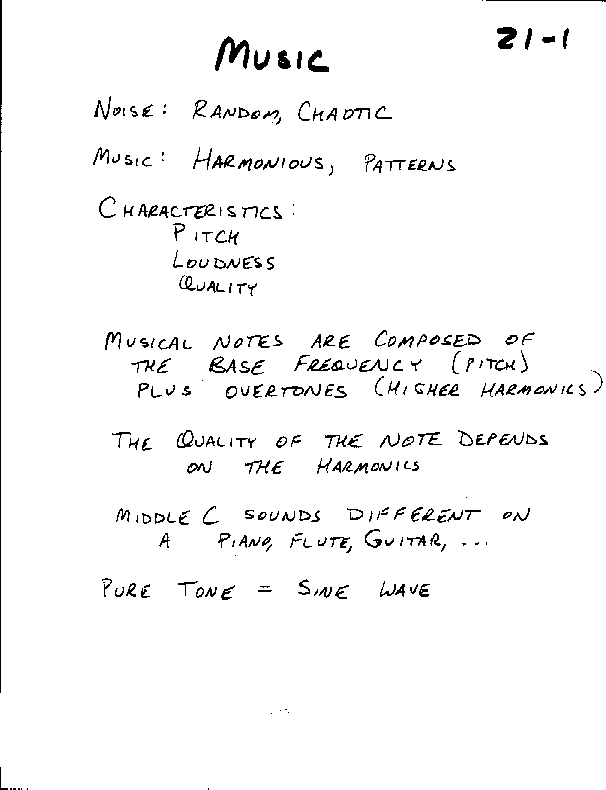 21-1
MUSIC
NOISE: RANDOM, CHAOTIC
MUSIC: HARMONIOUS, PATTERNS
CHARACTERISTICS:
PITCH
LOUDNESS
QUALITY
MUSICAL NOTES ARE COMPOSED OF
THE BASE FREQUENCY (PITCH)
PLUS OVERTONES (HIGHER HARMONICS)
THE QUALITY OF THE NOTE DEPENDS
ON THE HARMONICS
MIDDLE C SOUNDS DIFFERENT ON
A PIANO, FLUTE, GUITAR, ...
PURE TONE = SINE WAVE